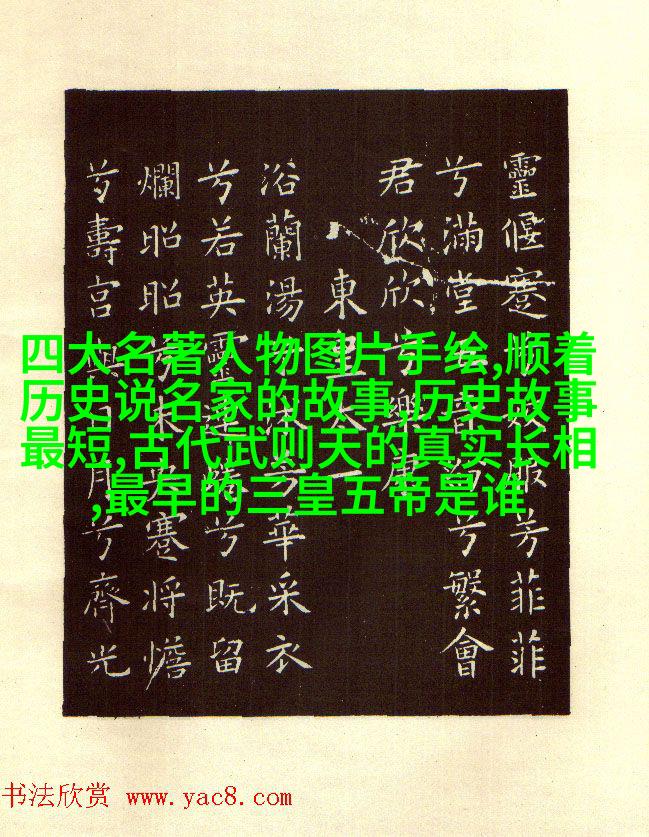 靈偃蹇服芳菲菲
兮滿堂音兮繁會
君欣欣兮樂康
東皇太一
浴蘭湯兮華采衣
兮若英靈連兮既留
爛昭昭兮未央蹇將憺
兮壽宮與月兮齊光
四大名著人物图片手绘,顺着
历史说名家的故事,历史故事
最短,古代武则天的真实长相
,最早的三皇五帝是谁
书法欣赏 www.yac8.com